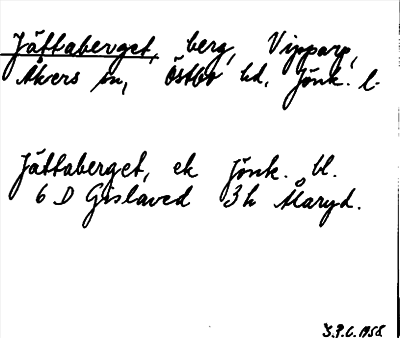 Jättaberget, berg, Vipparp,
Åkers sn, Östbo hd, Jönk. l.
Jättaberget, ek Jönk. bl.
6 D Gislaved 3h Åkaryd.
1958